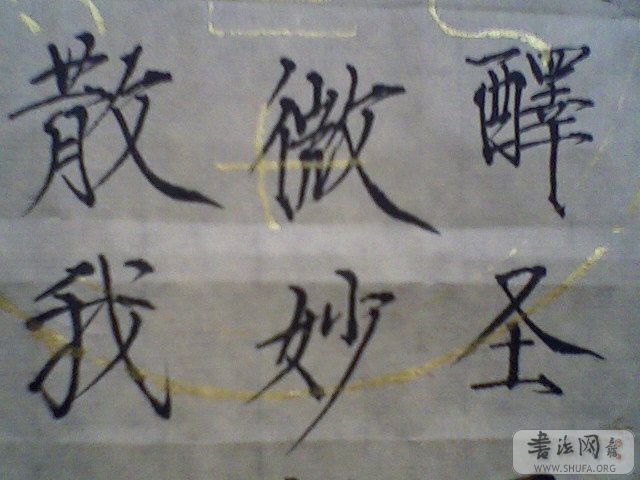 醳圣
微妙
散我
書法网
WWW.SHUFA.ORG